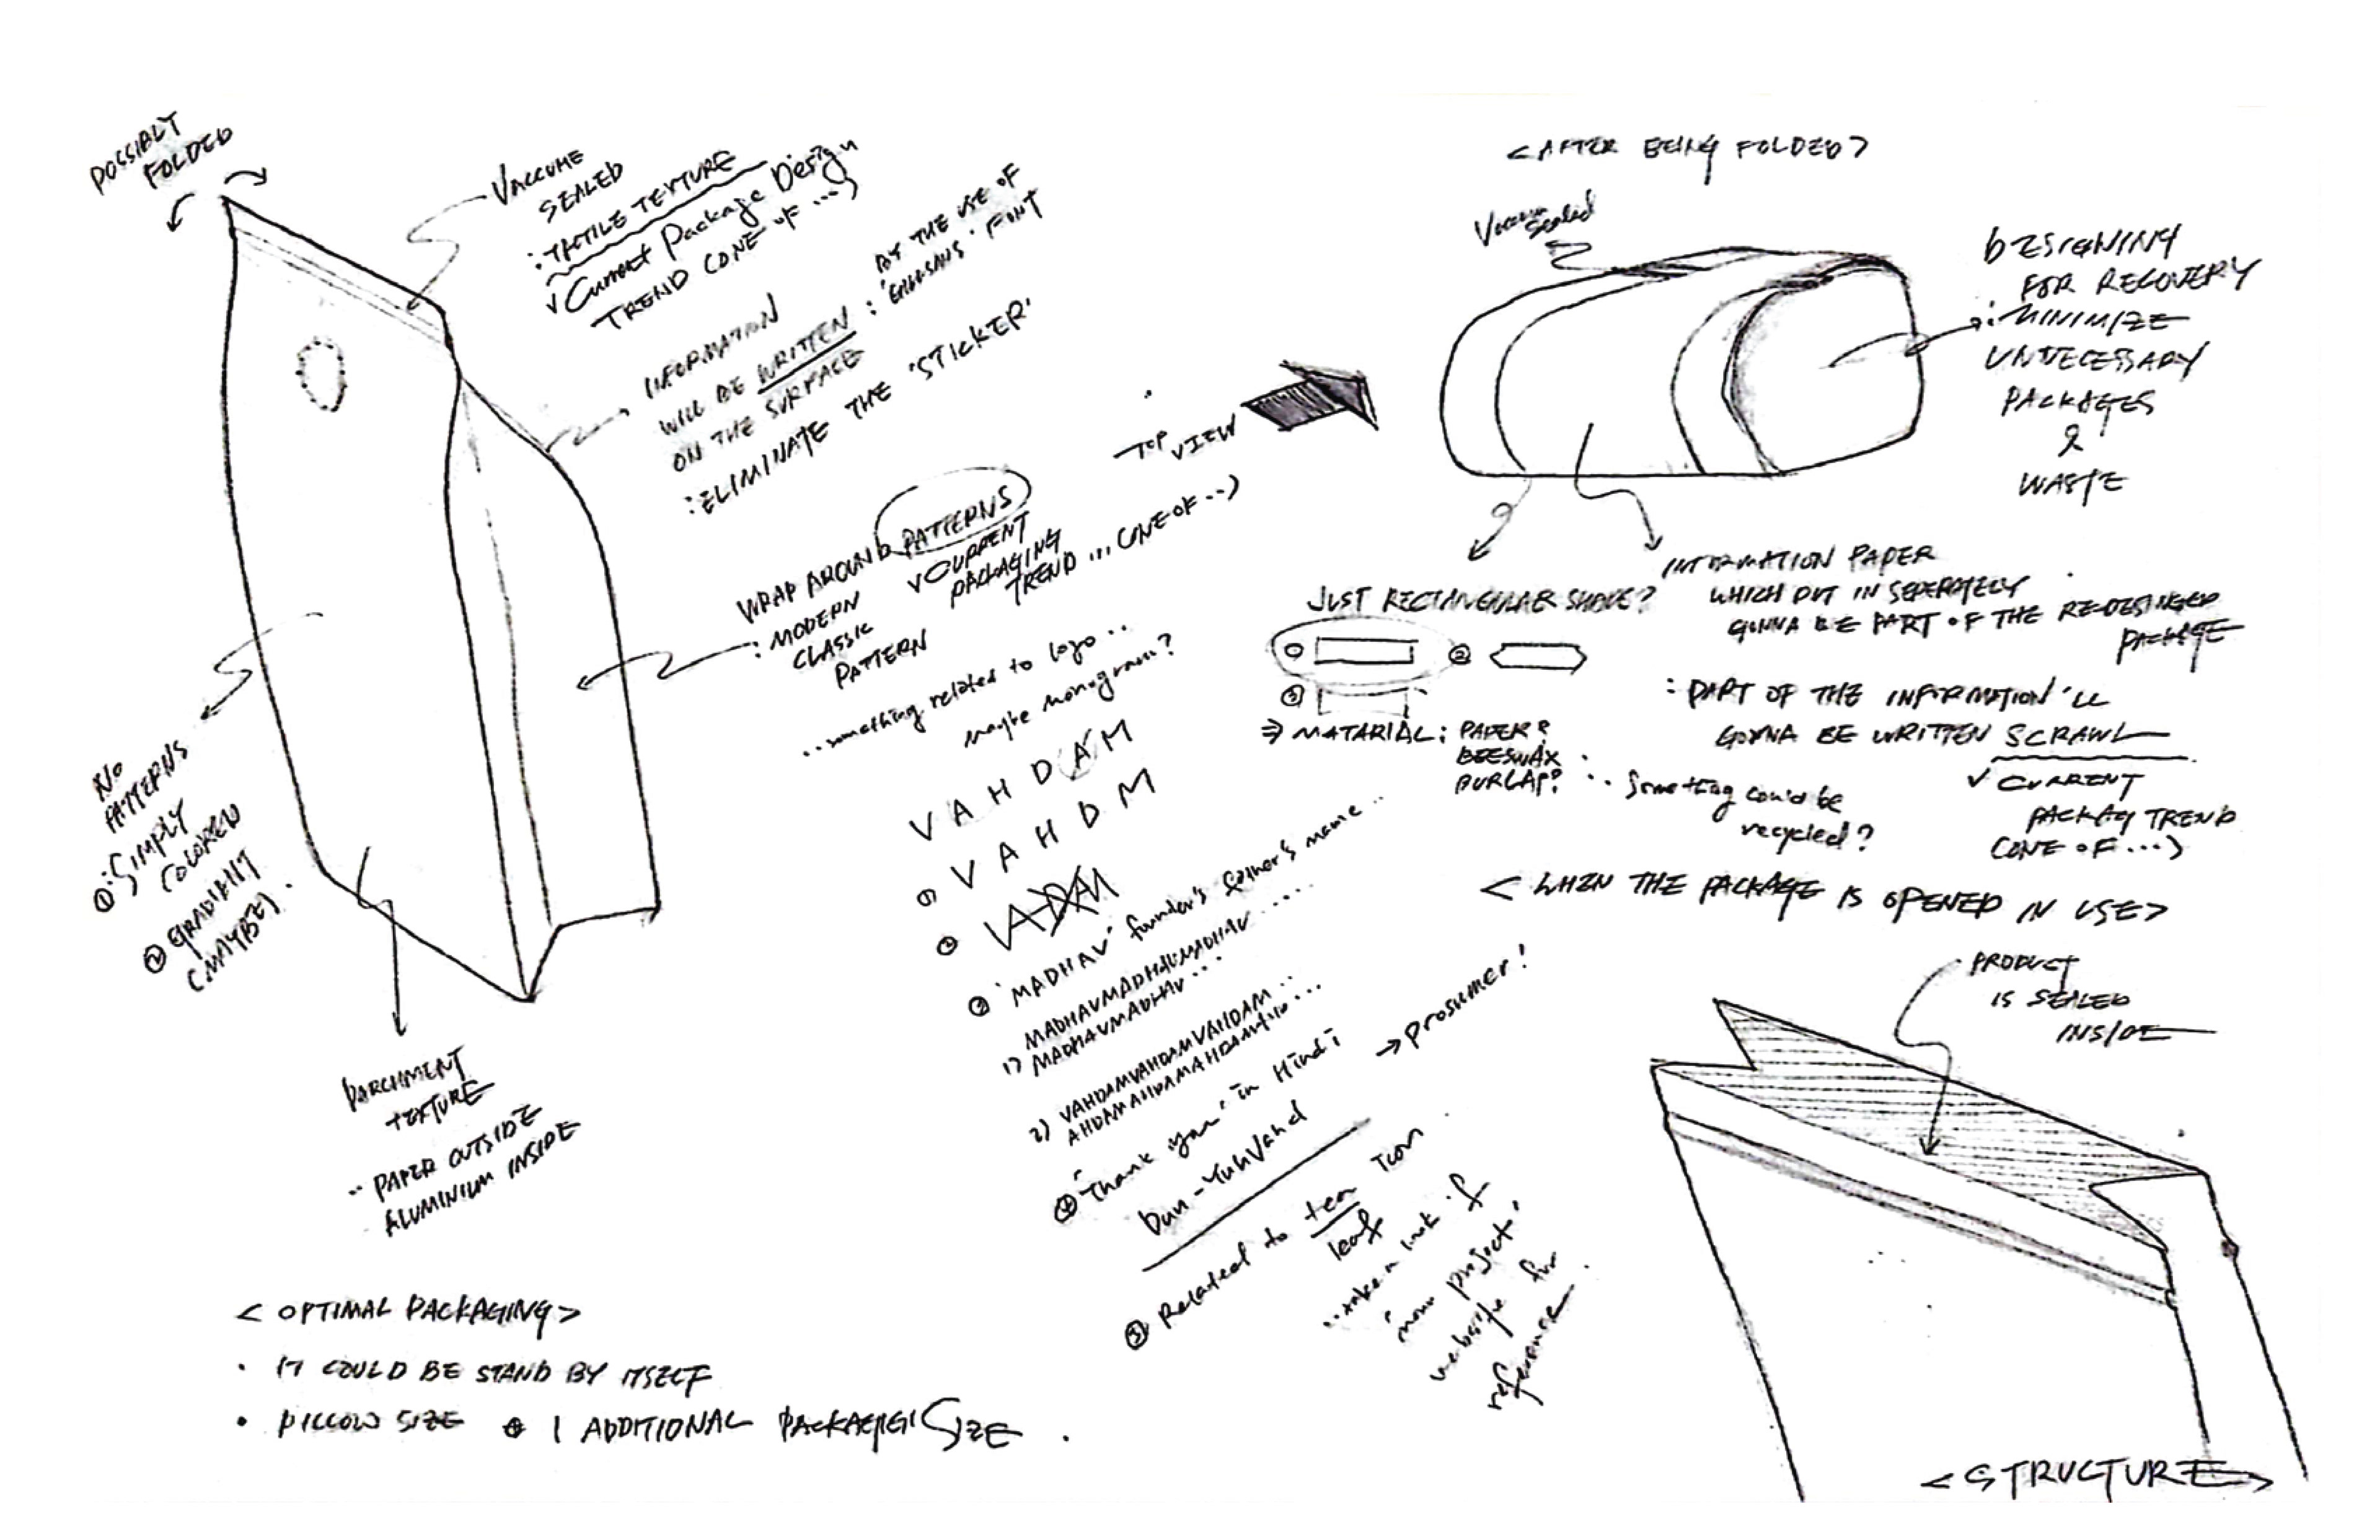 POSSIBLY
FOLDED
VACCUME
SEALED
: TACTILE TEXTURE
✓ Current Package Design
TREND CONE OF ...)
INFORMATION
WILL BE WRITTEN :
ON THE SURFACE
BY THE USE OF
FONT
: ELIMINATE THE 'STICKER'
WRAP AROUND PATTERNS
: MODERN
CLASSIC
PATTERN
✓ CURRENT
PACKAGING
TREND ... CONE OF ...)
.. something related to logo ..
maybe monogram?
VAHDAM
① VAHDM
②
③ 'MADHAV' founder's father's name ...
1) MADHAVMADHAVMADHAV ......
MADHAVMADHAV ...
2) VAHDAMVAHDAMVAHDAM ...
④ 'Thank you' in Hindi
→ prosumer!
Dun-YuhVahd
⑤ Related to tea Icon
leaf
.. take a look of
'noun project'
website for
reference.
NO
PATTERNS
① : SIMPLY
COLORED
② GRADIANT
(MAYBE).
PARCHMENT
TEXTURE
.. PAPER OUTSIDE
ALUMINIUM INSIDE
< OPTIMAL PACKAGING >
· IT COULD BE STAND BY ITSELF
· PILLOW SIZE
1 ADDITIONAL
SIZE .
TOP
VIEW
< AFTER BEING FOLDED >
Vacuum
Sealed
DESIGNING
FOR RECOVERY
: MINIMIZE
UNNECESSARY
PACKAGES
&
WASTE
JUST RECTANGULAR SHAPE?
②
③
⇒ MATARIAL : PAPER?
BEESWAX
BURLAP?
.. Something could be
recycled?
INFORMATION PAPER
WHICH PUT IN SEPERATELY
GONNA BE PART OF THE REDESINGED
PACKAGE
: PART OF THE INFORMATION'LL
GONNA BE WRITTEN SCRAWL
✓ CURRENT
PACKAG TREND
CONE OF ...)
< WHEN THE PACKAGE IS OPENED IN USE >
PRODUCT
IS SEALED
INSIDE
< STRUCTURE >